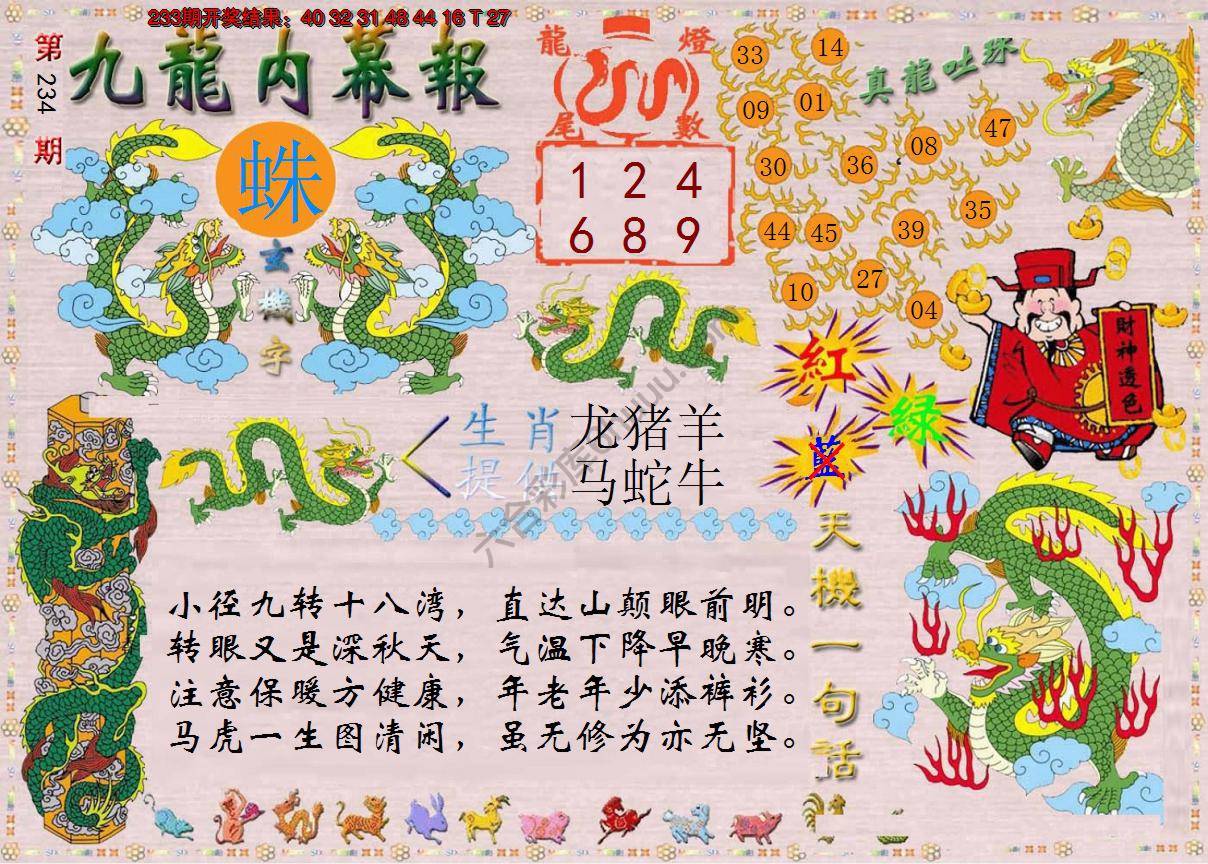 233期开奖结果：40 32 31 48 44 16 T 27
第
234
期
九龍内幕報
蛛
玄
機
字
龍
燈
尾
數
1 2 4
6 8 9
真龍吐珠
33
14
09
01
30
36
08
47
44
45
39
35
10
27
04
財神透色
紅
綠
藍
生肖
提供
龙猪羊
马蛇牛
天機一句話
小径九转十八湾，直达山颠眼前明。
转眼又是深秋天，气温下降早晚寒。
注意保暖方健康，年老年少添裤衫。
马虎一生图清闲，虽无修为亦无坚。